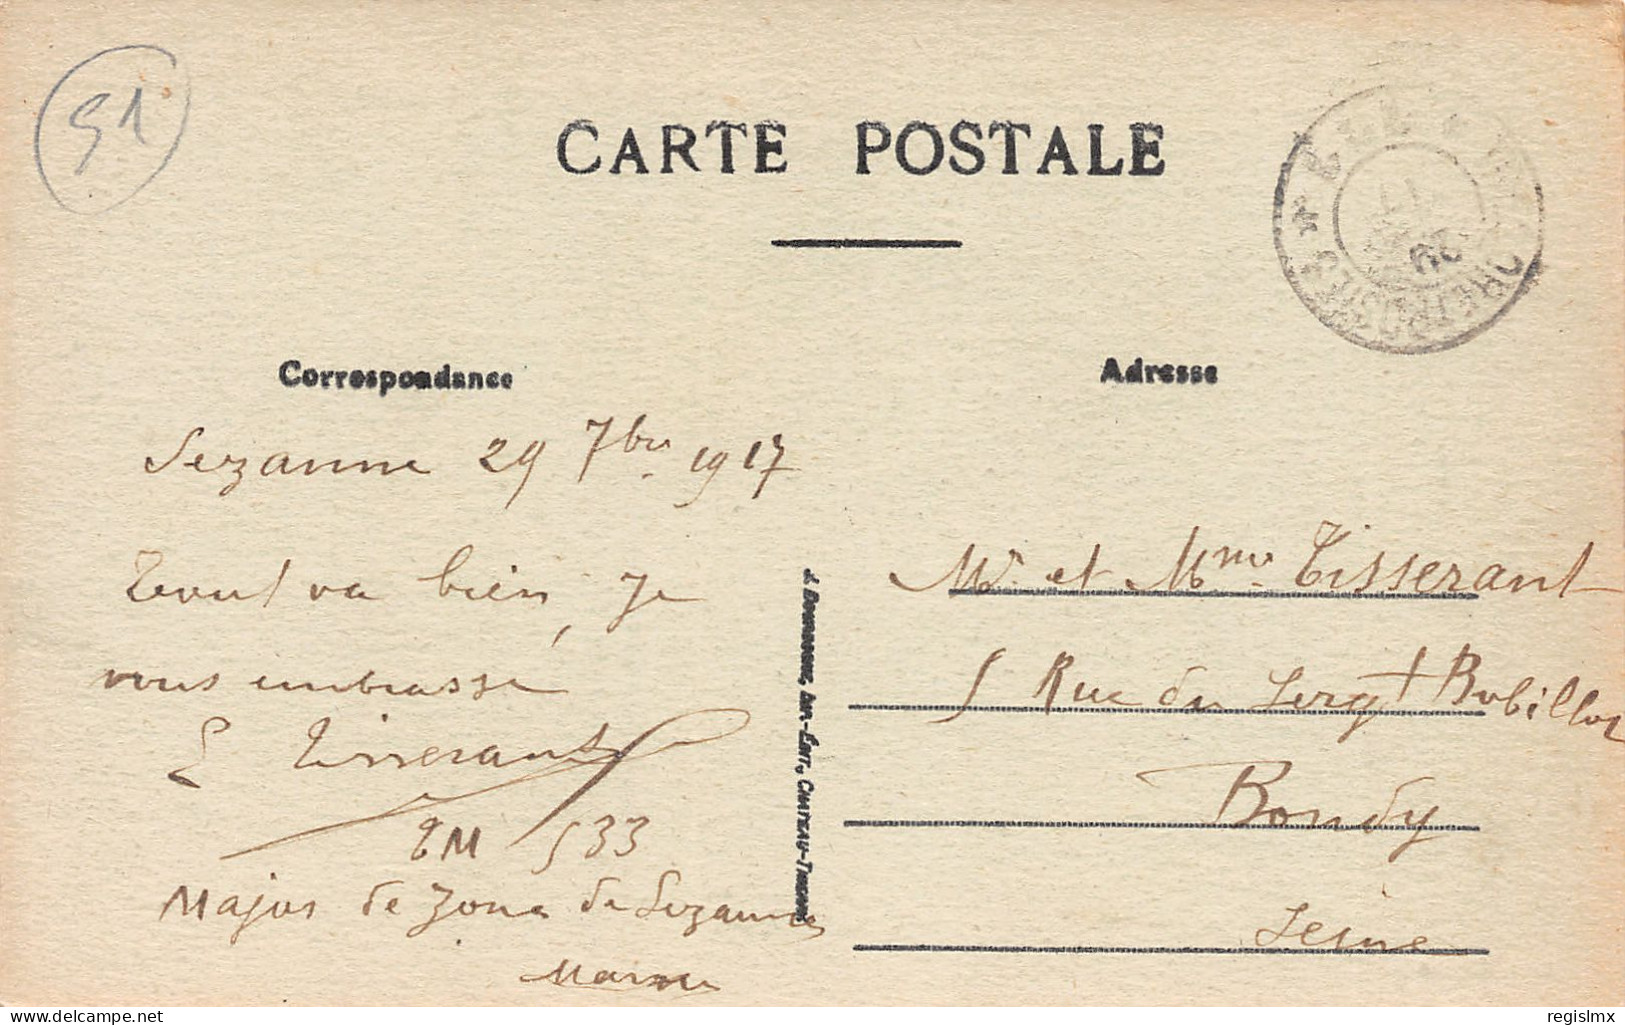 51
CARTE POSTALE
Correspondance
Adresse
Sezanne 29 7bre 1917
Tout va bien, je
vous embrasse
E Tisserant
TM 533
Major de Zone de Sezanne
Marne
J. Bourgogne, Imp.-Édit., Chateau-Thierry
Mr et Mme Tisserant
5 Rue du Sergt Bobillot
Bondy
Seine
29
POSTES
delcampe.net
regislmx